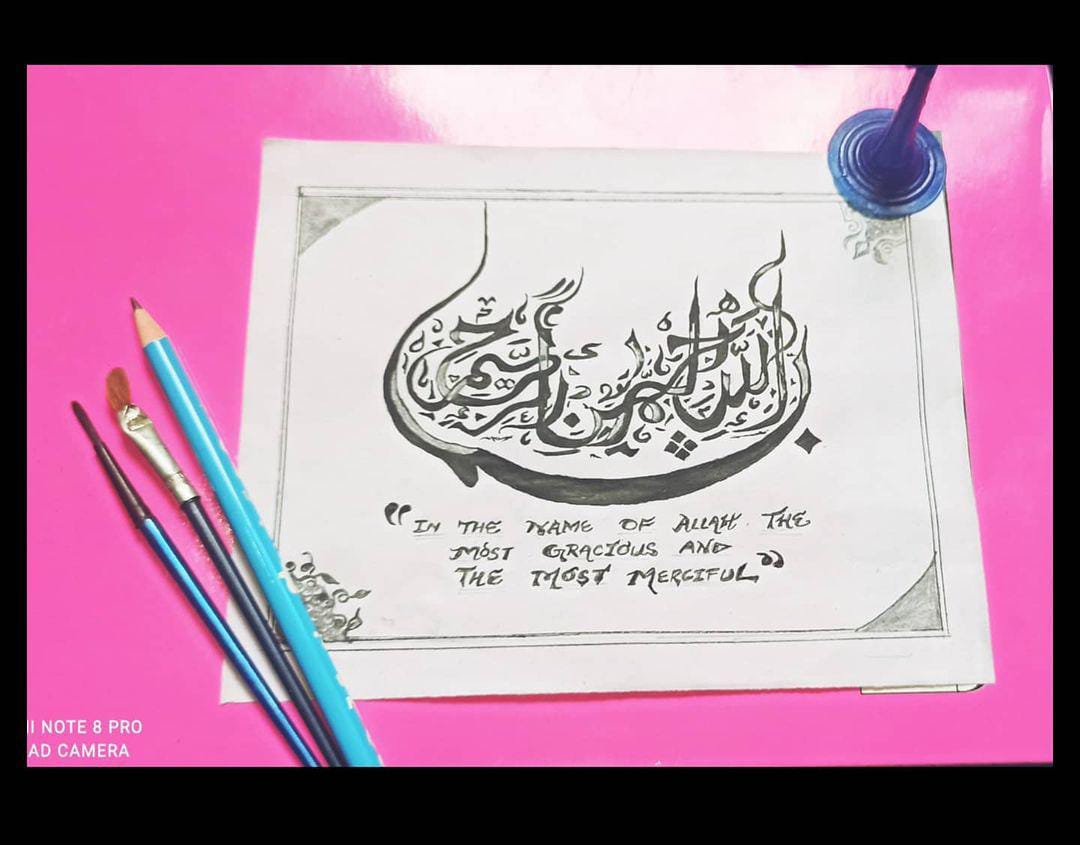 بسم الله الرحمن الرحيم
“IN THE NAME OF ALLAH THE
MOST GRACIOUS AND
THE MOST MERCIFUL”
II NOTE 8 PRO
AD CAMERA